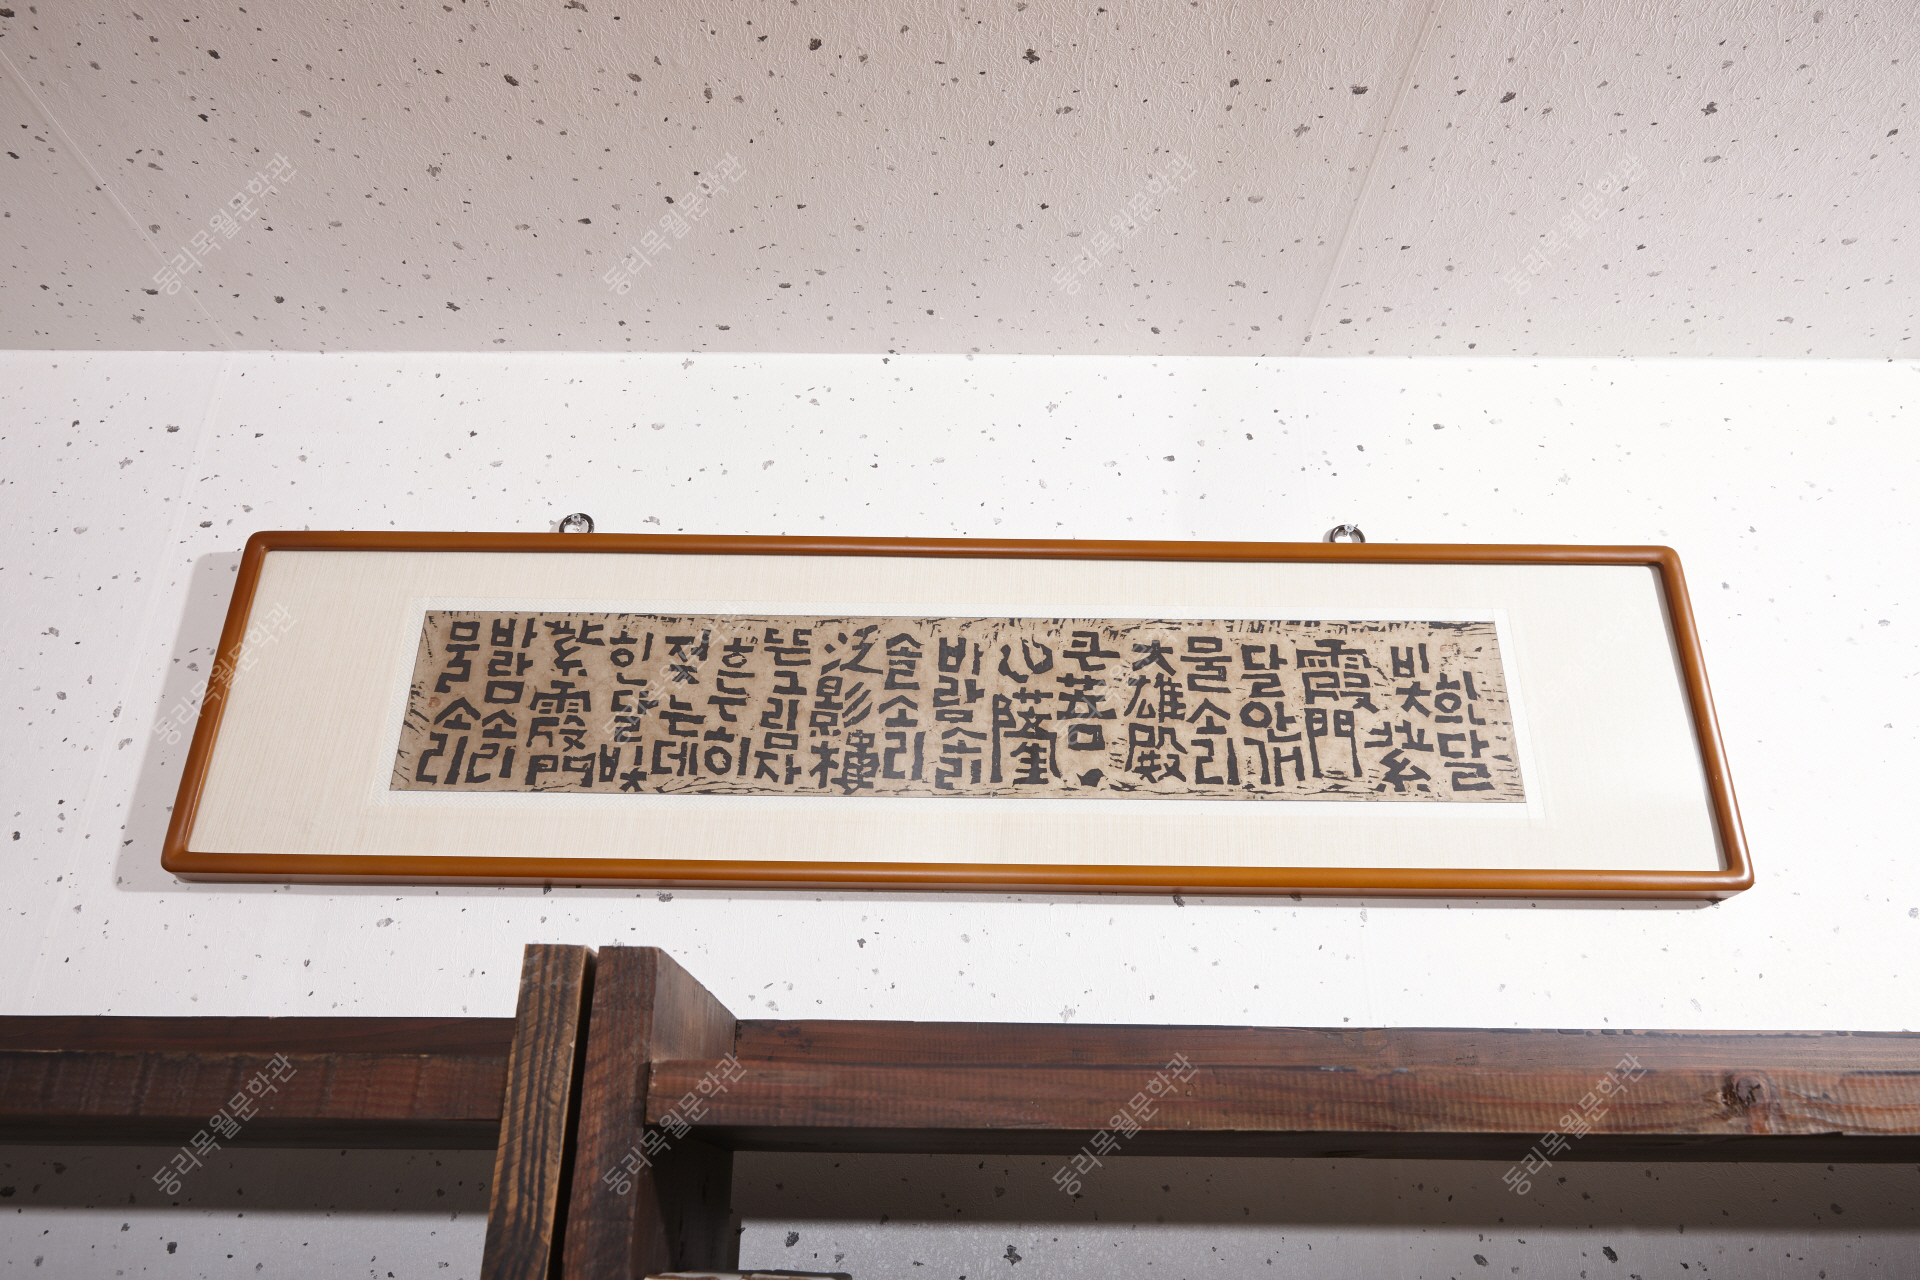 흰달
빛紫
霞門
달안개
물소리
大雄殿
큰菩
薩
바람소리
솔소리
泛影樓
뜬그림자
흐는히
젖는데
흰달빛
紫霞門
바람소리
물소리
동리목월문학관
동리목월문학관
동리목월문학관
동리목월문학관
동리목월문학관
동리목월문학관
동리목월문학관
동리목월문학관
동리목월문학관
동리목월문학관
동리목월문학관
동리목월문학관